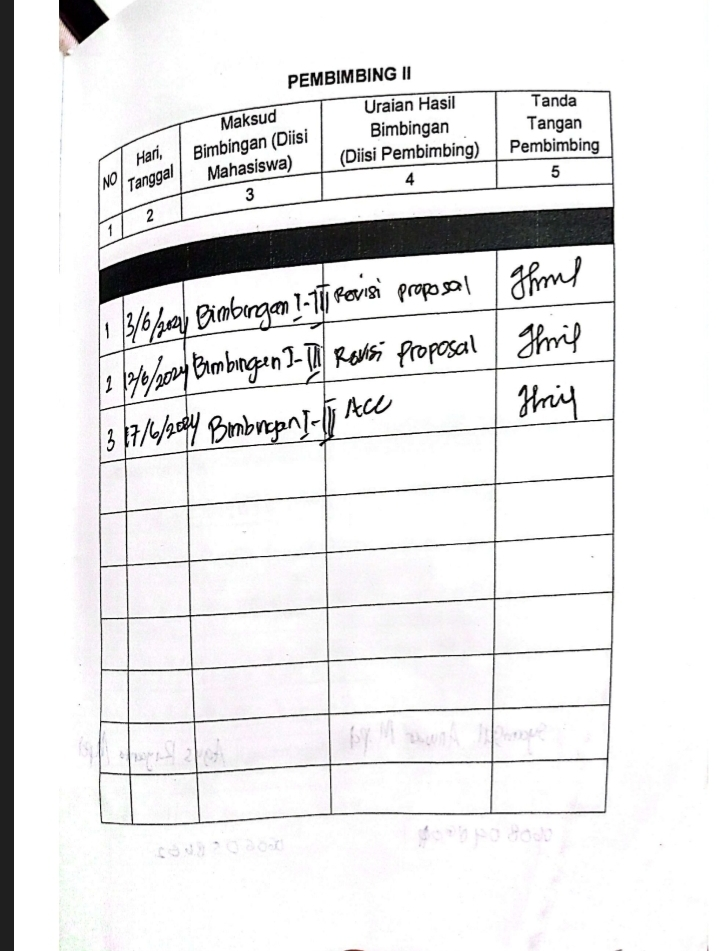 PEMBIMBING II
NO
Hari,
Tanggal
Maksud
Bimbingan (Diisi
Mahasiswa)
Uraian Hasil
Bimbingan
(Diisi Pembimbing)
Tanda
Tangan
Pembimbing
1 2 3 4 5
1 3/6/2024 Bimbingan I-III Revisi proposal
2 12/6/2024 Bimbingan I-III Revisi Proposal
3 17/6/2024 Bimbingan I-III ACC